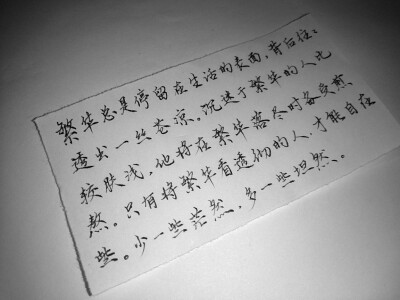 繁华总是停留在生活的表面，背后往往
透出一丝苍凉。沉迷于繁华的人比
较肤浅，他将在繁华落尽时备受煎
熬。只有将繁华看透彻的人，才能自在
些。少一些茫然，多一些坦然。